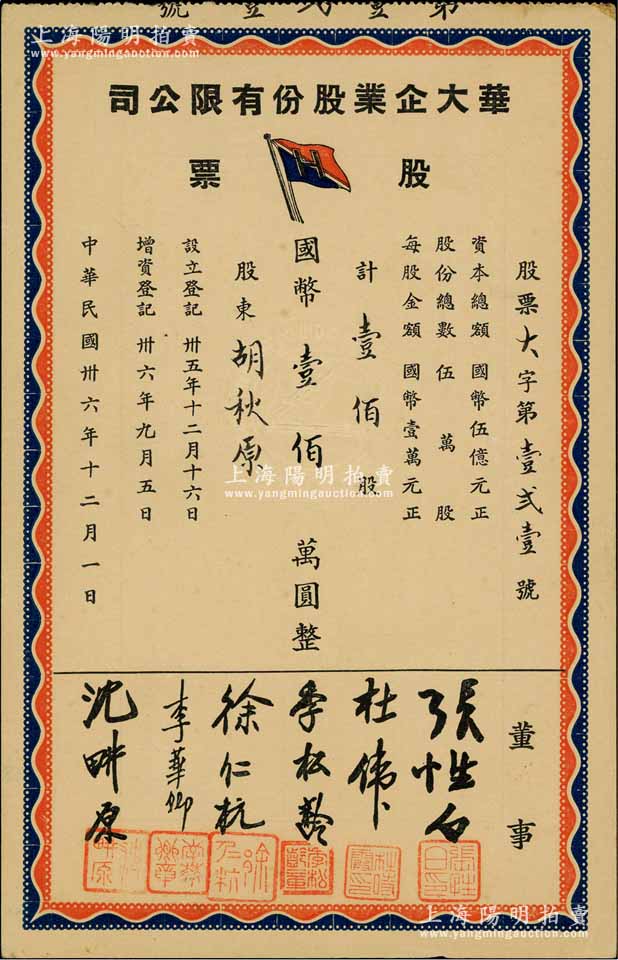 第壹弍壹號
上海陽明拍賣
www.yangmingauction.com
華大企業股份有限公司
股票
H
股票大字第壹弍壹號
資本總額 國幣伍億元正
股份總數 伍萬股
每股金額 國幣壹萬元正
計壹佰股
國幣壹佰萬圓整
股東 胡秋原
設立登記 卅五年十二月十六日
增資登記 卅六年九月五日
中華民國卅六年十二月一日
上海陽明拍賣
www.yangmingauction.com
董事
張性白
杜偉
季松齡
徐仁杭
李華卿
沈畊原
上海陽明拍賣
www.yangmingauction.com